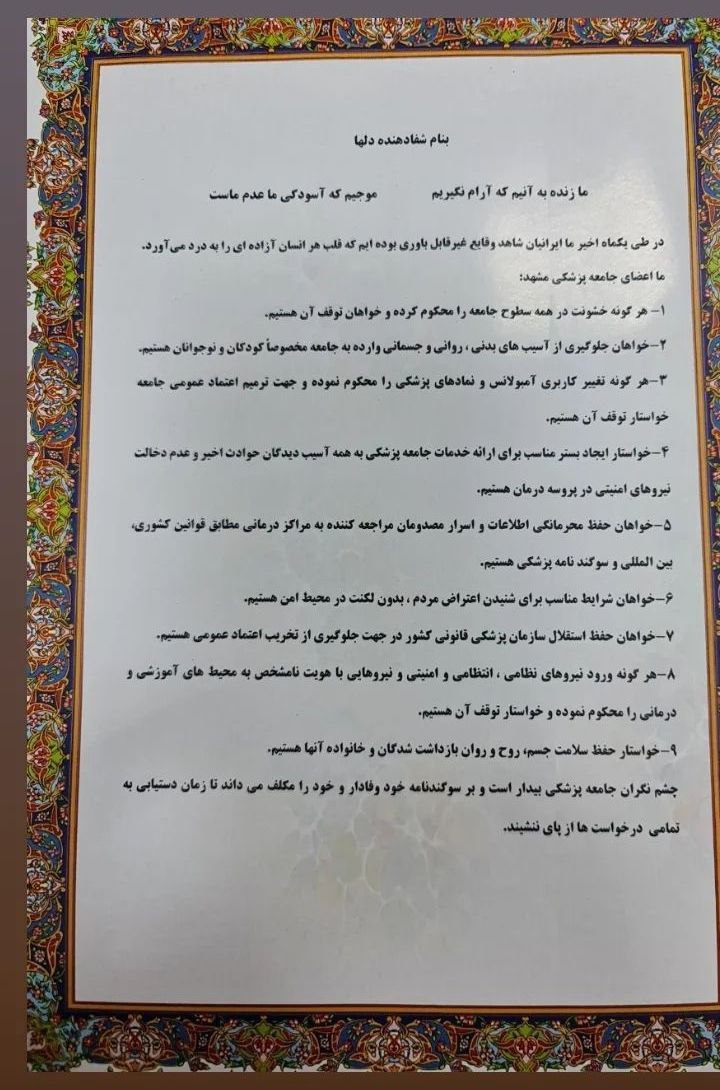 بنام شفادهنده دلها
ما زنده به آنیم که آرام نگیریم موجیم که آسودگی ما عدم ماست
در طی یکماه اخیر ما ایرانیان شاهد وقایع غیرقابل باوری بوده ایم که قلب هر انسان آزاده ای را به درد می‌آورد.
ما اعضای جامعه پزشکی مشهد:
۱- هر گونه خشونت در همه سطوح جامعه را محکوم کرده و خواهان توقف آن هستیم.
۲-خواهان جلوگیری از آسیب های بدنی ، روانی و جسمانی وارده به جامعه مخصوصاً کودکان و نوجوانان هستیم.
۳-هر گونه تغییر کاربری آمبولانس و نمادهای پزشکی را محکوم نموده و جهت ترمیم اعتماد عمومی جامعه
خواستار توقف آن هستیم.
۴-خواستار ایجاد بستر مناسب برای ارائه خدمات جامعه پزشکی به همه آسیب دیدگان حوادث اخیر و عدم دخالت
نیروهای امنیتی در پروسه درمان هستیم.
۵-خواهان حفظ محرمانگی اطلاعات و اسرار مصدومان مراجعه کننده به مراکز درمانی مطابق قوانین کشوری،
بین المللی و سوگند نامه پزشکی هستیم.
۶-خواهان شرایط مناسب برای شنیدن اعتراض مردم ، بدون لکنت در محیط امن هستیم.
۷-خواهان حفظ استقلال سازمان پزشکی قانونی کشور در جهت جلوگیری از تخریب اعتماد عمومی هستیم.
۸-هر گونه ورود نیروهای نظامی ، انتظامی و امنیتی و نیروهایی با هویت نامشخص به محیط های آموزشی و
درمانی را محکوم نموده و خواستار توقف آن هستیم.
۹-خواستار حفظ سلامت جسم، روح و روان بازداشت شدگان و خانواده آنها هستیم.
چشم نگران جامعه پزشکی بیدار است و بر سوگندنامه خود وفادار و خود را مکلف می داند تا زمان دستیابی به
تمامی درخواست ها از پای ننشیند.